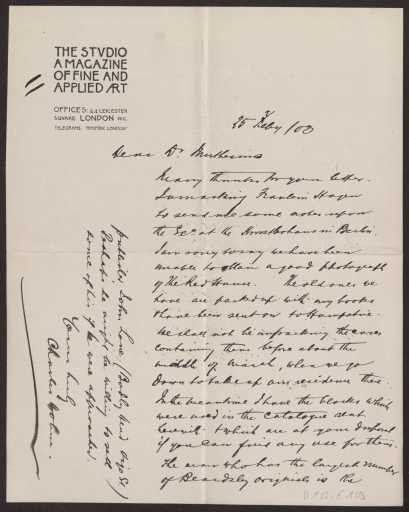 THE STVDIO
A MAGAZINE
OF FINE AND
APPLIED ART
OFFICES: 44 LEICESTER
SQUARE LONDON W.C.
TELEGRAMS
LONDON
25 Feby/03
Dear Dr. Muthesius
Many thanks for your letter.
I am asking Fraulein Hagen
to send me some notes upon
the at the Kunstlerhaus in Berlin.
I am sorry to say we have been
unable to obtain a good photograph
of the Red House. The old ones we
have are packed up with my books
& have been sent on to Hampshire.
We shall not be unpacking the cases
containing them before about the
middle of March, when we go
down to take up our residence there.
In the meantime I have the blocks which
were used in the Catalogue that
& which are at your disposal
if you can find any use for them.
The man who has the largest number
of Beardsley originals is the
publisher John Lane (Bodley Head Vigo St)
Probably he might be willing to sell
some of his if he were approached.
Yours truly
Charles Holme.